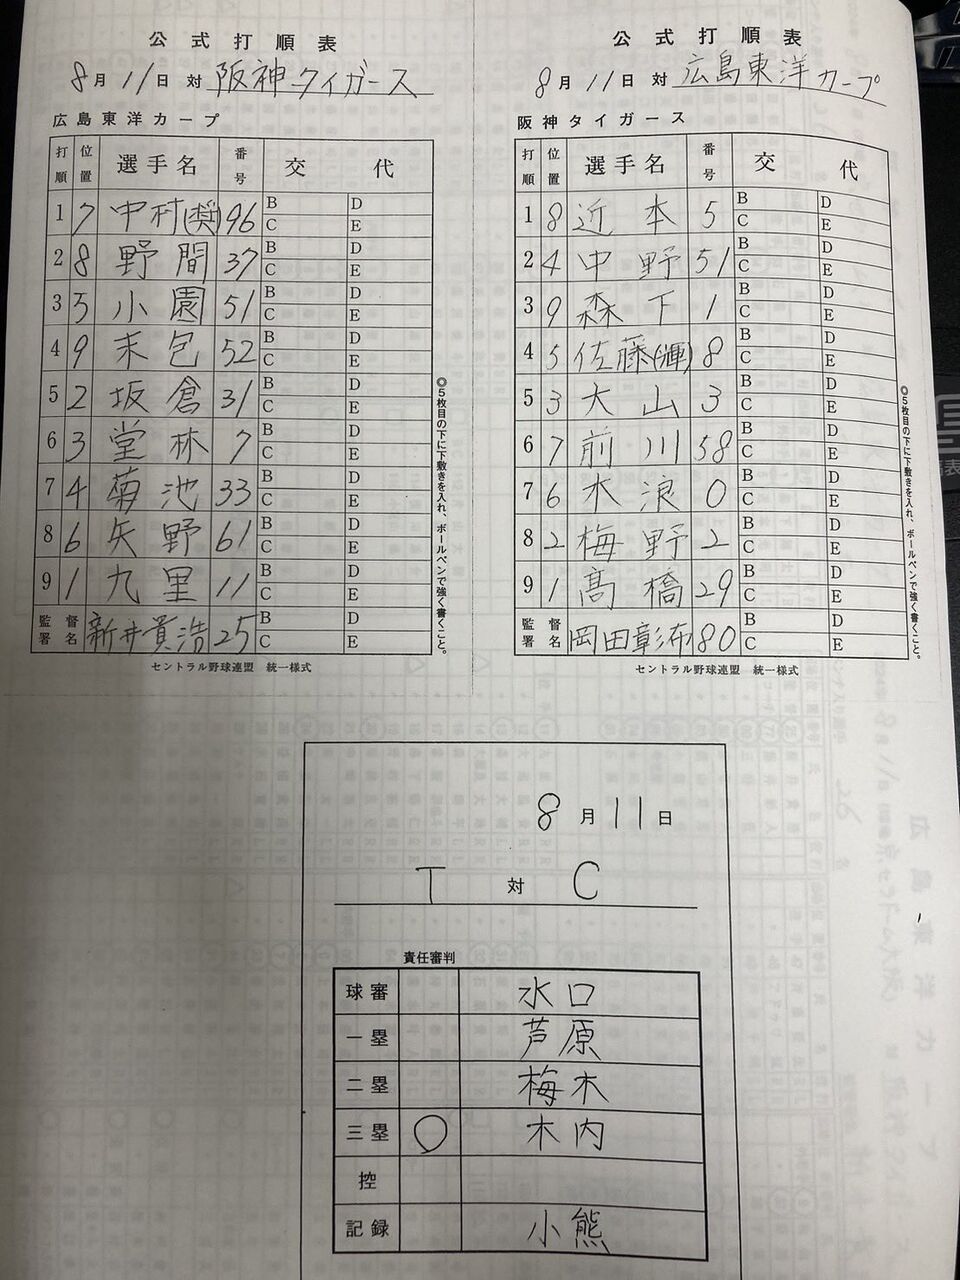 公式打順表
8月11日 対 阪神タイガース
広島東洋カープ
打順 位置 選手名 番号 交代
1 7 中村(奨) 96 B D
C E
2 8 野間 37 B D
C E
3 5 小園 51 B D
C E
4 9 末包 52 B D
C E
5 2 坂倉 31 B D
C E
6 3 堂林 7 B D
C E
7 4 菊池 33 B D
C E
8 6 矢野 61 B D
C E
9 1 九里 11 B D
C E
監督署名 新井貴浩 25 B D
C E
◎5枚目の下に下敷きを入れ、ボールペンで強く書くこと。
セントラル野球連盟 統一様式
公式打順表
8月11日 対 広島東洋カープ
阪神タイガース
打順 位置 選手名 番号 交代
1 8 近本 5 B D
C E
2 4 中野 51 B D
C E
3 9 森下 1 B D
C E
4 5 佐藤(輝) 8 B D
C E
5 3 大山 3 B D
C E
6 7 前川 58 B D
C E
7 6 木浪 0 B D
C E
8 2 梅野 2 B D
C E
9 1 髙橋 29 B D
C E
監督署名 岡田彰布 80 B D
C E
◎5枚目の下に下敷きを入れ、ボールペンで強く書くこと。
セントラル野球連盟 統一様式
8月11日
T 対 C
責任審判
球審 水口
一塁 芦原
二塁 梅木
三塁 ○ 木内
控
記録 小熊